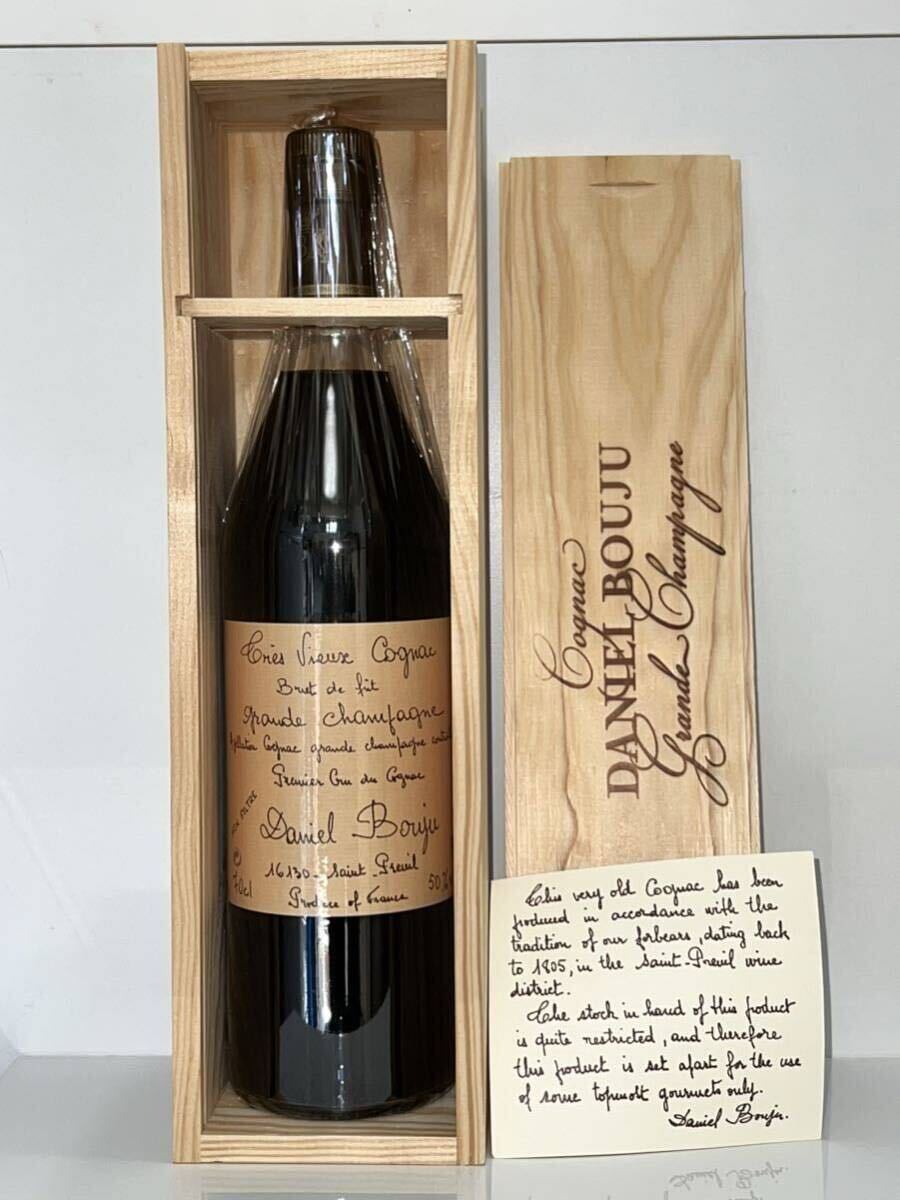 Très Vieux Cognac
Brut de fût
Grande Champagne
Appellation Cognac grande champagne contrôlée
Premier Cru du Cognac
NON FILTRÉ
Daniel Bouju
70cl
16130 - Saint-Preuil
Produce of France
50%
Cognac
DANIEL BOUJU
Grande Champagne
This very old Cognac has been
produced in accordance with the
tradition of our forbears, dating back
to 1805, in the Saint-Preuil wine
district.
The stock in hand of this product
is quite restricted, and therefore
this product is set apart for the use
of some topmost gourmets only.
Daniel Bouju.